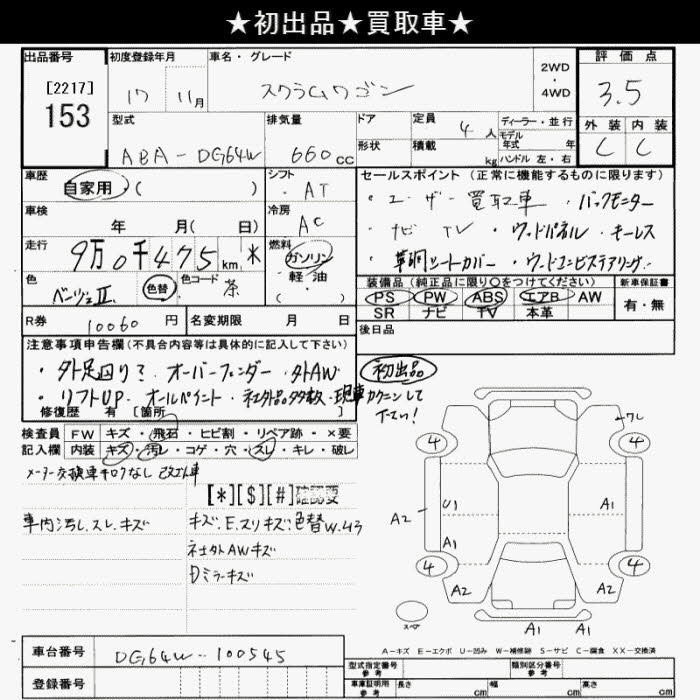 ★初出品★買取車★
出品番号 初度登録年月 車名・グレード 2WD・4WD 評価点
[2217] 153 17 11月 スクラムワゴン 3.5
型式 排気量 ドア 定員 4人 ディーラー・並行 外装 内装
ABA-DG64W 660cc 形状 積載 kg モデル年式 年 ハンドル 左・右 C C
車歴 シフト セールスポイント (正常に機能するものに限ります)
自家用・( ) ・AT ・ユーザー買取車 ・バックモニター
車検 年 月(日) 冷房 AC ・ナビ TV ・ウッドパネル ・キーレス
走行 9万0千475km * 燃料 ガソリン 軽・油 ( )
・革調シートカバー ・ウッドコンビステアリング
色 ベージュII 色替 色コード 茶 装備品 (純正品に限り○をつけてください) 新車保証書
PS PW ABS エアB AW 有・無
SR ナビ TV 本革
R券 10060円 名変期限 月 日 後日品
注意事項申告欄(不具合内容等は具体的に記入して下さい)
・外足回り? ・オーバーフェンダー ・外AW 初出品
・リフトUP ・オールペイント ・社外品多数 現車カクニンして下さい!
修復歴 有 [箇所 ]
検査員 FW キズ・飛石・ヒビ割・リペア跡・×要
記入欄 内装 キズ・汚レ・コゲ・穴・スレ・キレ・破レ
メーター交換車キロクなし 改エ車
[*][$][#]確認要
車内汚レ.スレ.キズ キズ.E.スリキズ.色替W.43
社外AWキズ
Dミラーキズ
ワレ
4 4
A2 U1 A1 A1
4 4
A2 A2
スペア A1 A1
A-キズ E-エクボ U-凹み W-補修跡 S-サビ C-腐食 XX-交換済
車台番号 DG64W-100545 型式指定番号 参考 類別区分番号 参考
登録番号 車庫証明用 参考 長さ cm 幅 cm 高さ cm